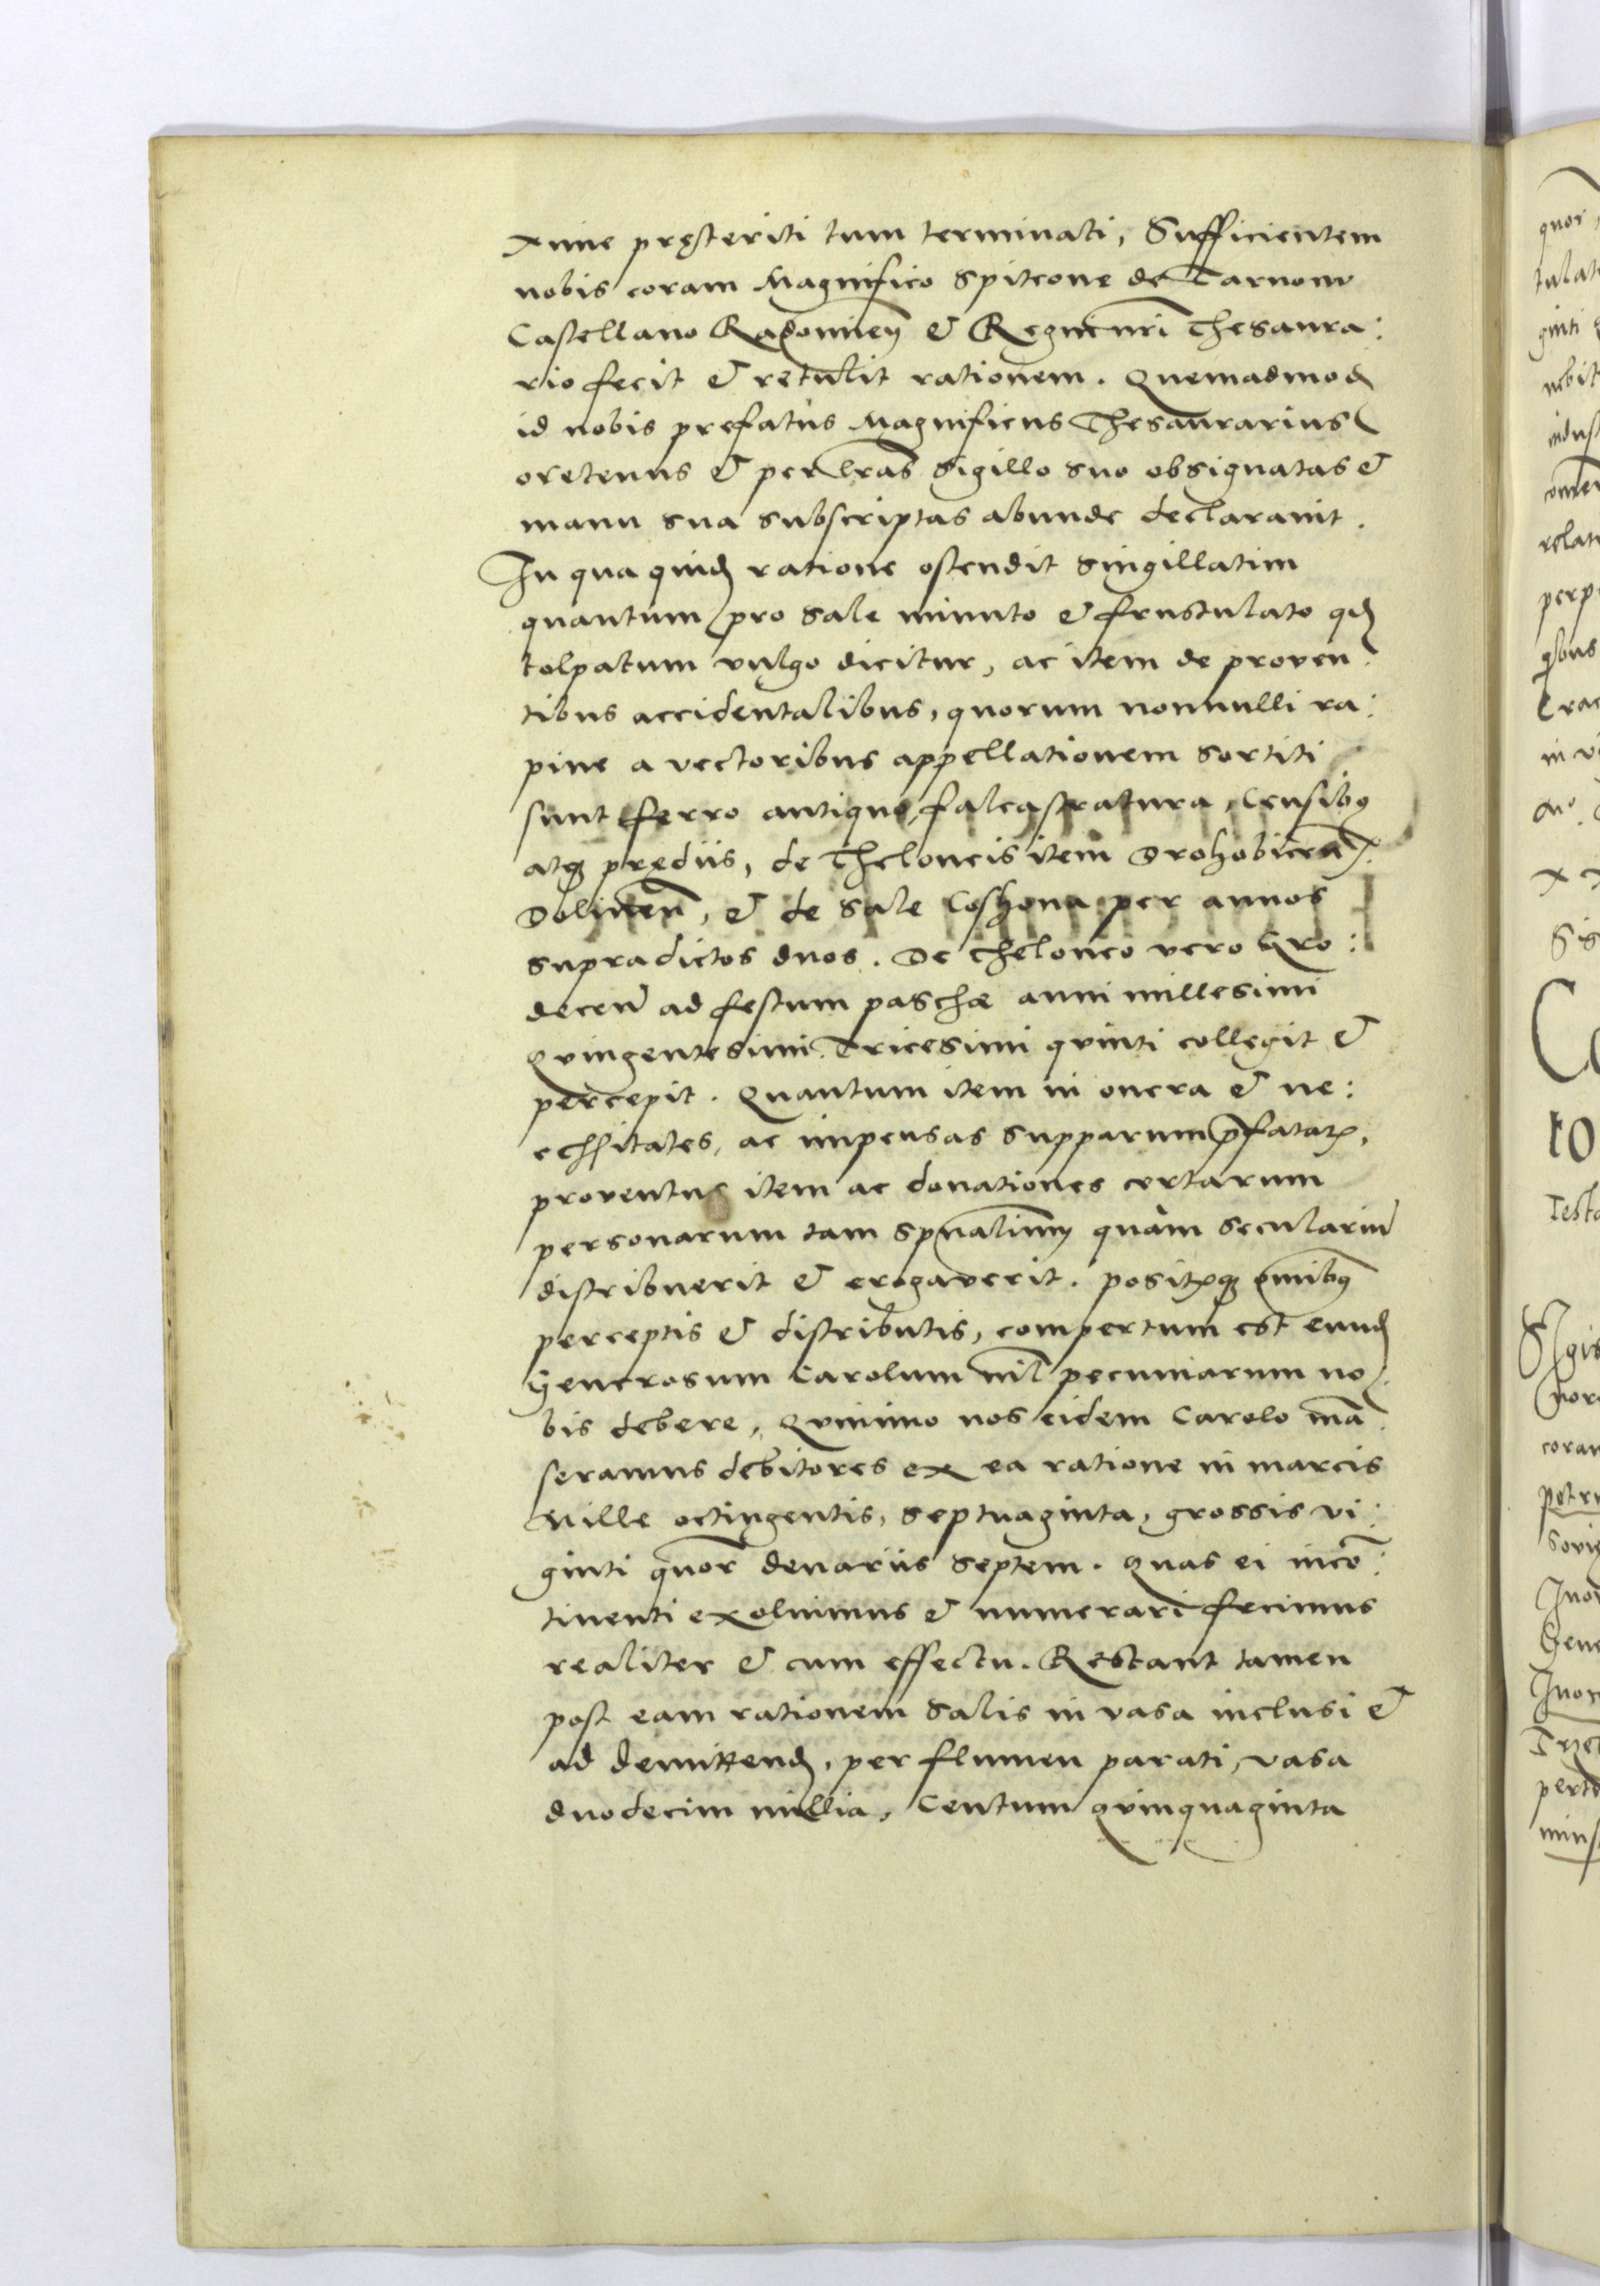 xime pręteriti tum terminati, Sufficientem
nobis coram Magnifico Spitcone de Tarnow
Castellano Radomień & Regni nri Thesaura:
rio fecit & retulit rationem. Quemadmod
id nobis prefatus Magnificus Thesaurarius
oretenus & per lras Sigillo suo obsignatas &
manu sua subscriptas abunde declaravit.
In qua quid ratione ostendit singillatim
quantum pro Sale minuto & frustulato qd
tolpatum vulgo dicitur, ac item de proven:
tibus accidentalibus, quorum nonnulli ra:
pine a vectoribus appellationem sortiti
sunt ferro antiquo, falcastratura, Censibq
atq prędiis, de Theloneis item Drohobicen
Dolinen, & de Sale Coshona per annos
supradictos duos. De theloneo vero Gro:
decen ad festum paschæ anni millesimi
Quingentesimi Tricesimi quinti collegit &
percepit. Quantum item in onera & ne:
cessitates, ac impensas supparum pfatar,
proventus item ac donationes certarum
personarum tam spualium quàm seculariu
distribuerit & erogaverit. Positisq omibq
perceptis & distributis, compertum est eund
Generosum Carolum nil pecuniarum no:
bis debere, Quinimo nos eidem Carolo man
seramus debitores ex ea ratione in marcis
Mille octingentis, septuaginta, grossis vi:
ginti quor denariis septem. Quas ei inco:
tinenti exoluimus & numerari fecimus
realiter & cum effectu. Restant tamen
post eam rationem Salis in vasa inclusi &
ad demittend, per flumen parati, vasa
duodecim millia, Centum quinquaginta